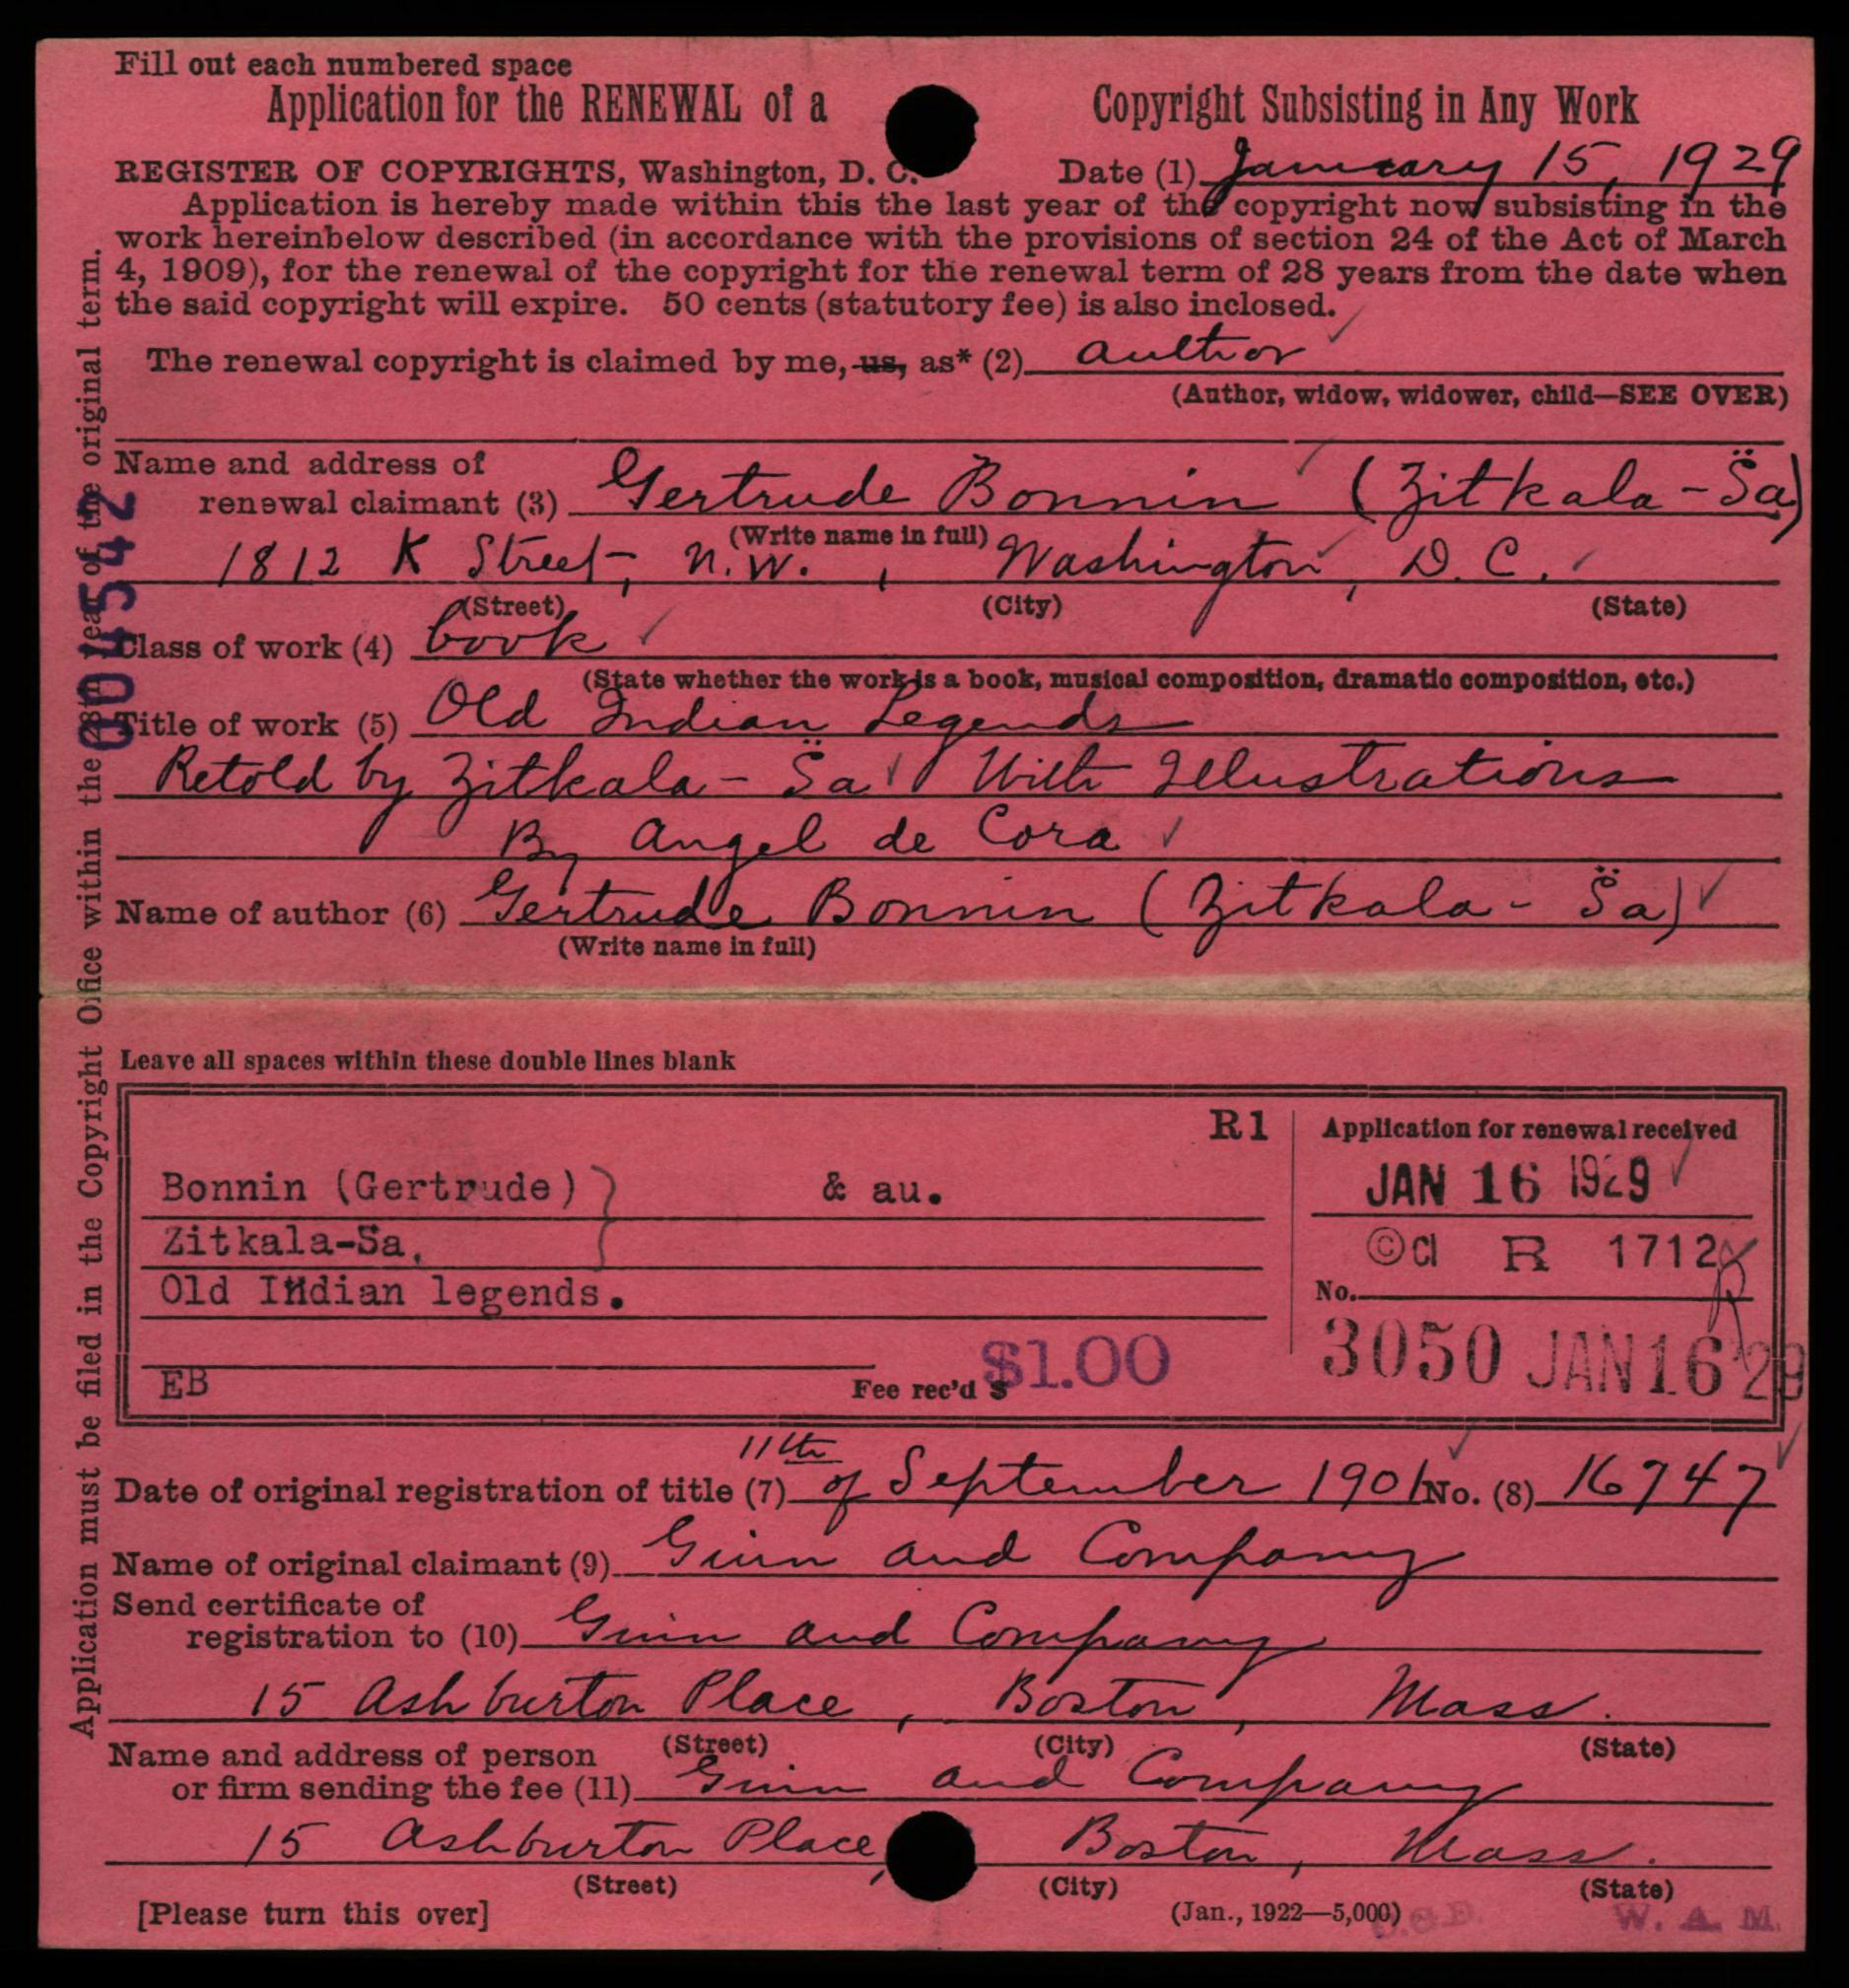 Fill out each numbered space
Application for the RENEWAL of a Copyright Subsisting in Any Work
REGISTER OF COPYRIGHTS, Washington, D. C. Date (1) January 15, 1929
Application is hereby made within this the last year of the copyright now subsisting in the
work hereinbelow described (in accordance with the provisions of section 24 of the Act of March
4, 1909), for the renewal of the copyright for the renewal term of 28 years from the date when
the said copyright will expire. 50 cents (statutory fee) is also inclosed.
The renewal copyright is claimed by me, us, as* (2) author
(Author, widow, widower, child—SEE OVER)
Name and address of
renewal claimant (3) Gertrude Bonnin (Zitkala-S̈a)
(Write name in full)
1812 K Street, N.W., Washington, D.C.
(Street) (City) (State)
Class of work (4) book
(State whether the work is a book, musical composition, dramatic composition, etc.)
Title of work (5) Old Indian Legends
Retold by Zitkala-S̈a With Illustrations
By Angel de Cora
Name of author (6) Gertrude Bonnin (Zitkala-S̈a)
(Write name in full)
Application must be filed in the Copyright Office within the 28th year of the original term.
004542
Leave all spaces within these double lines blank
R1 Application for renewal received
JAN 16 1929
Bonnin (Gertrude) & au.
Zitkala-Sa.
Old Indian legends.
©Cl R 1712
No.
EB Fee rec'd $ $1.00
3050 JAN 16'29
Date of original registration of title (7) 11th of September 1901 No. (8) 16747
Name of original claimant (9) Ginn and Company
Send certificate of
registration to (10) Ginn and Company
15 Ashburton Place, Boston, Mass.
(Street) (City) (State)
Name and address of person
or firm sending the fee (11) Ginn and Company
15 Ashburton Place, Boston, Mass.
(Street) (City) (State)
[Please turn this over] (Jan., 1922—5,000) W. A. M.